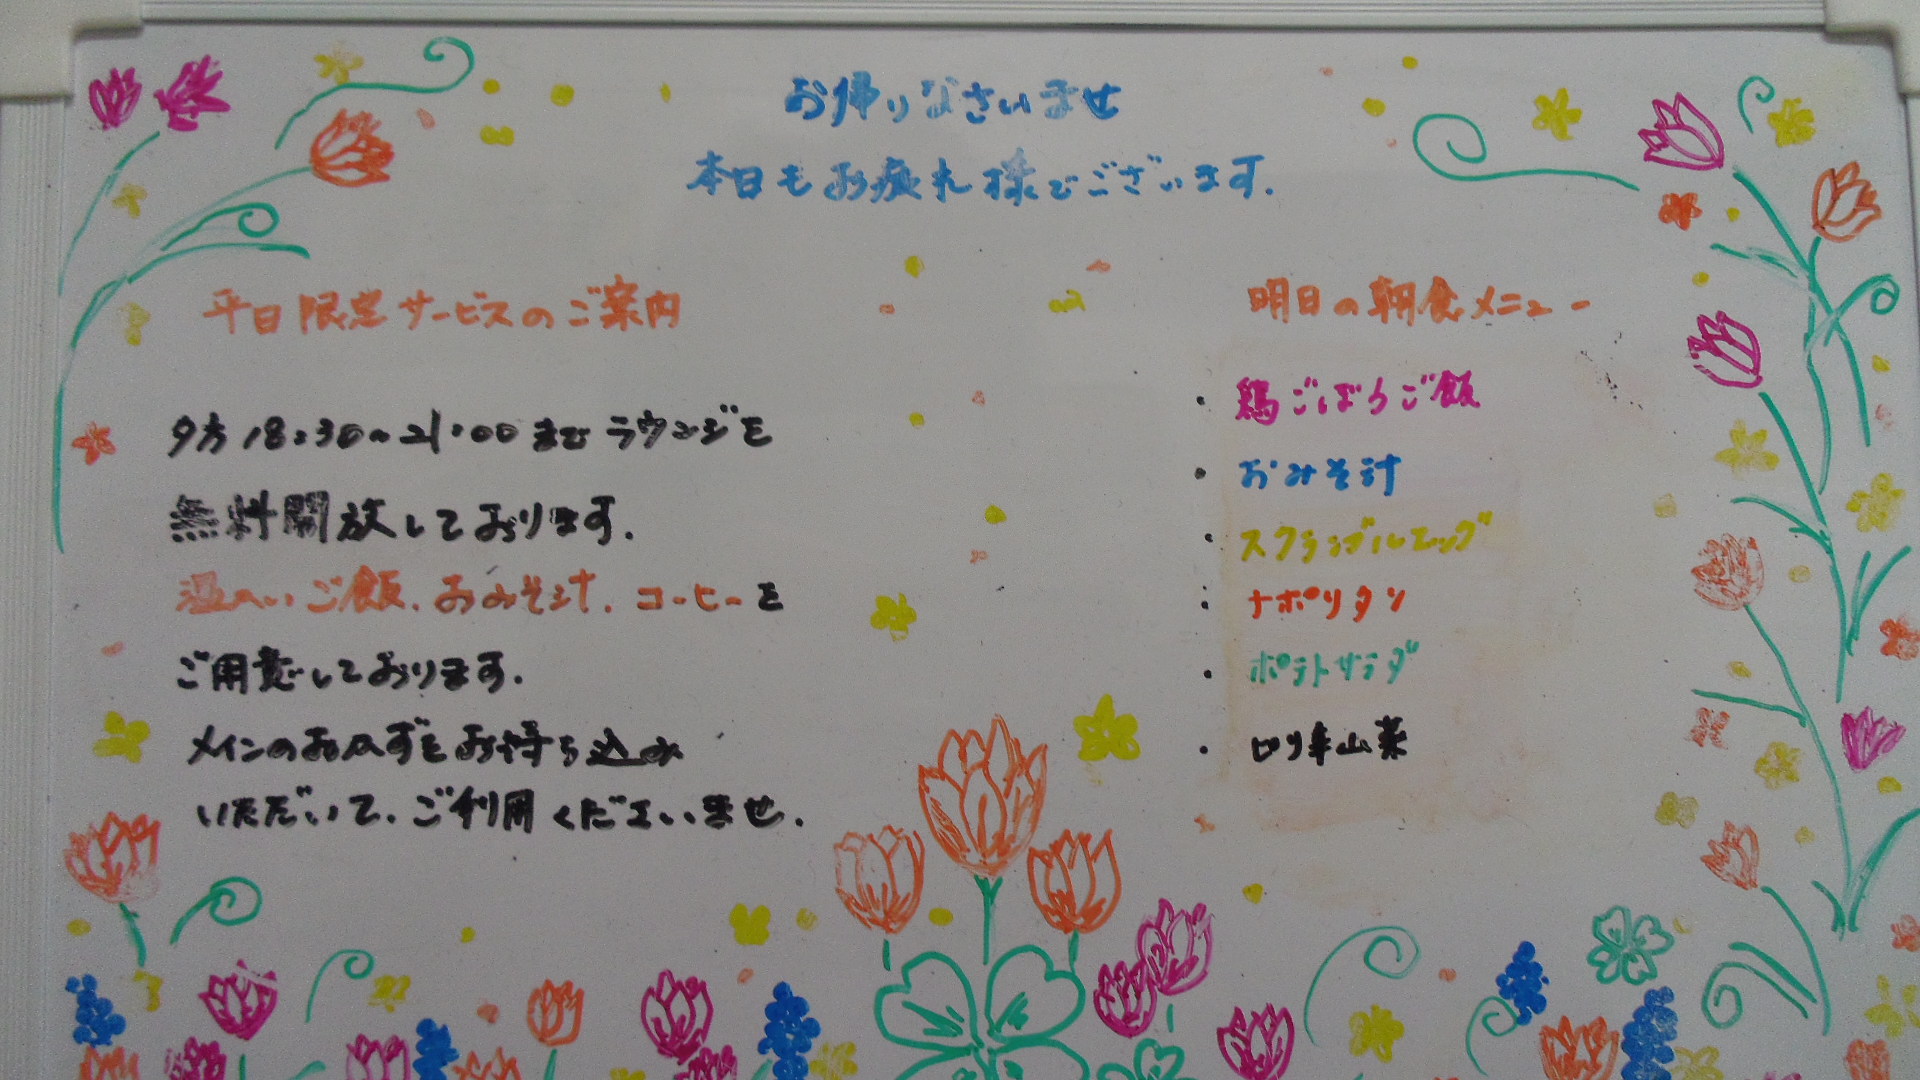 お帰りなさいませ
本日もお疲れ様でございます.
平日限定サービスのご案内
夕方18:30~21:00までラウンジを
無料開放しております.
温かいご飯.おみそ汁.コーヒーを
ご用意しております.
メインのおかずをお持ち込み
いただいて、ご利用くださいませ.
明日の朝食メニュー
・鶏ごぼうご飯
・おみそ汁
・スクランブルエッグ
・ナポリタン
・ポテトサラダ
・切り干山菜